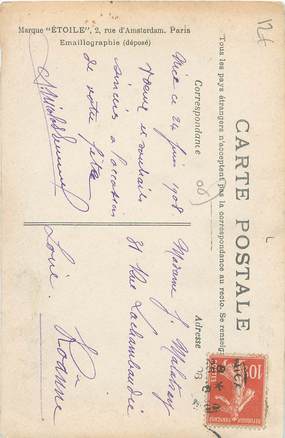 Marque "ÉTOILE", 2, rue d'Amsterdam. Paris
Emaillographie (déposé)
CARTE POSTALE
Tous les pays étrangers n'acceptent pas la correspondance au recto. Se renseigner
Correspondance
Adresse
Nice ce 24 juin 1908
Vœux et souhaits
sincères a l'occasion
de votre fête
Madame J.
81 Rue Lachambaudie
Roanne
Loire
10